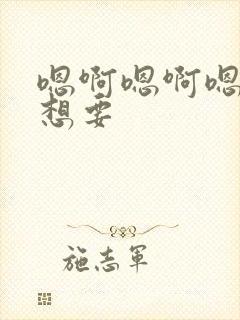 嗯啊嗯啊嗯
想要
施志军